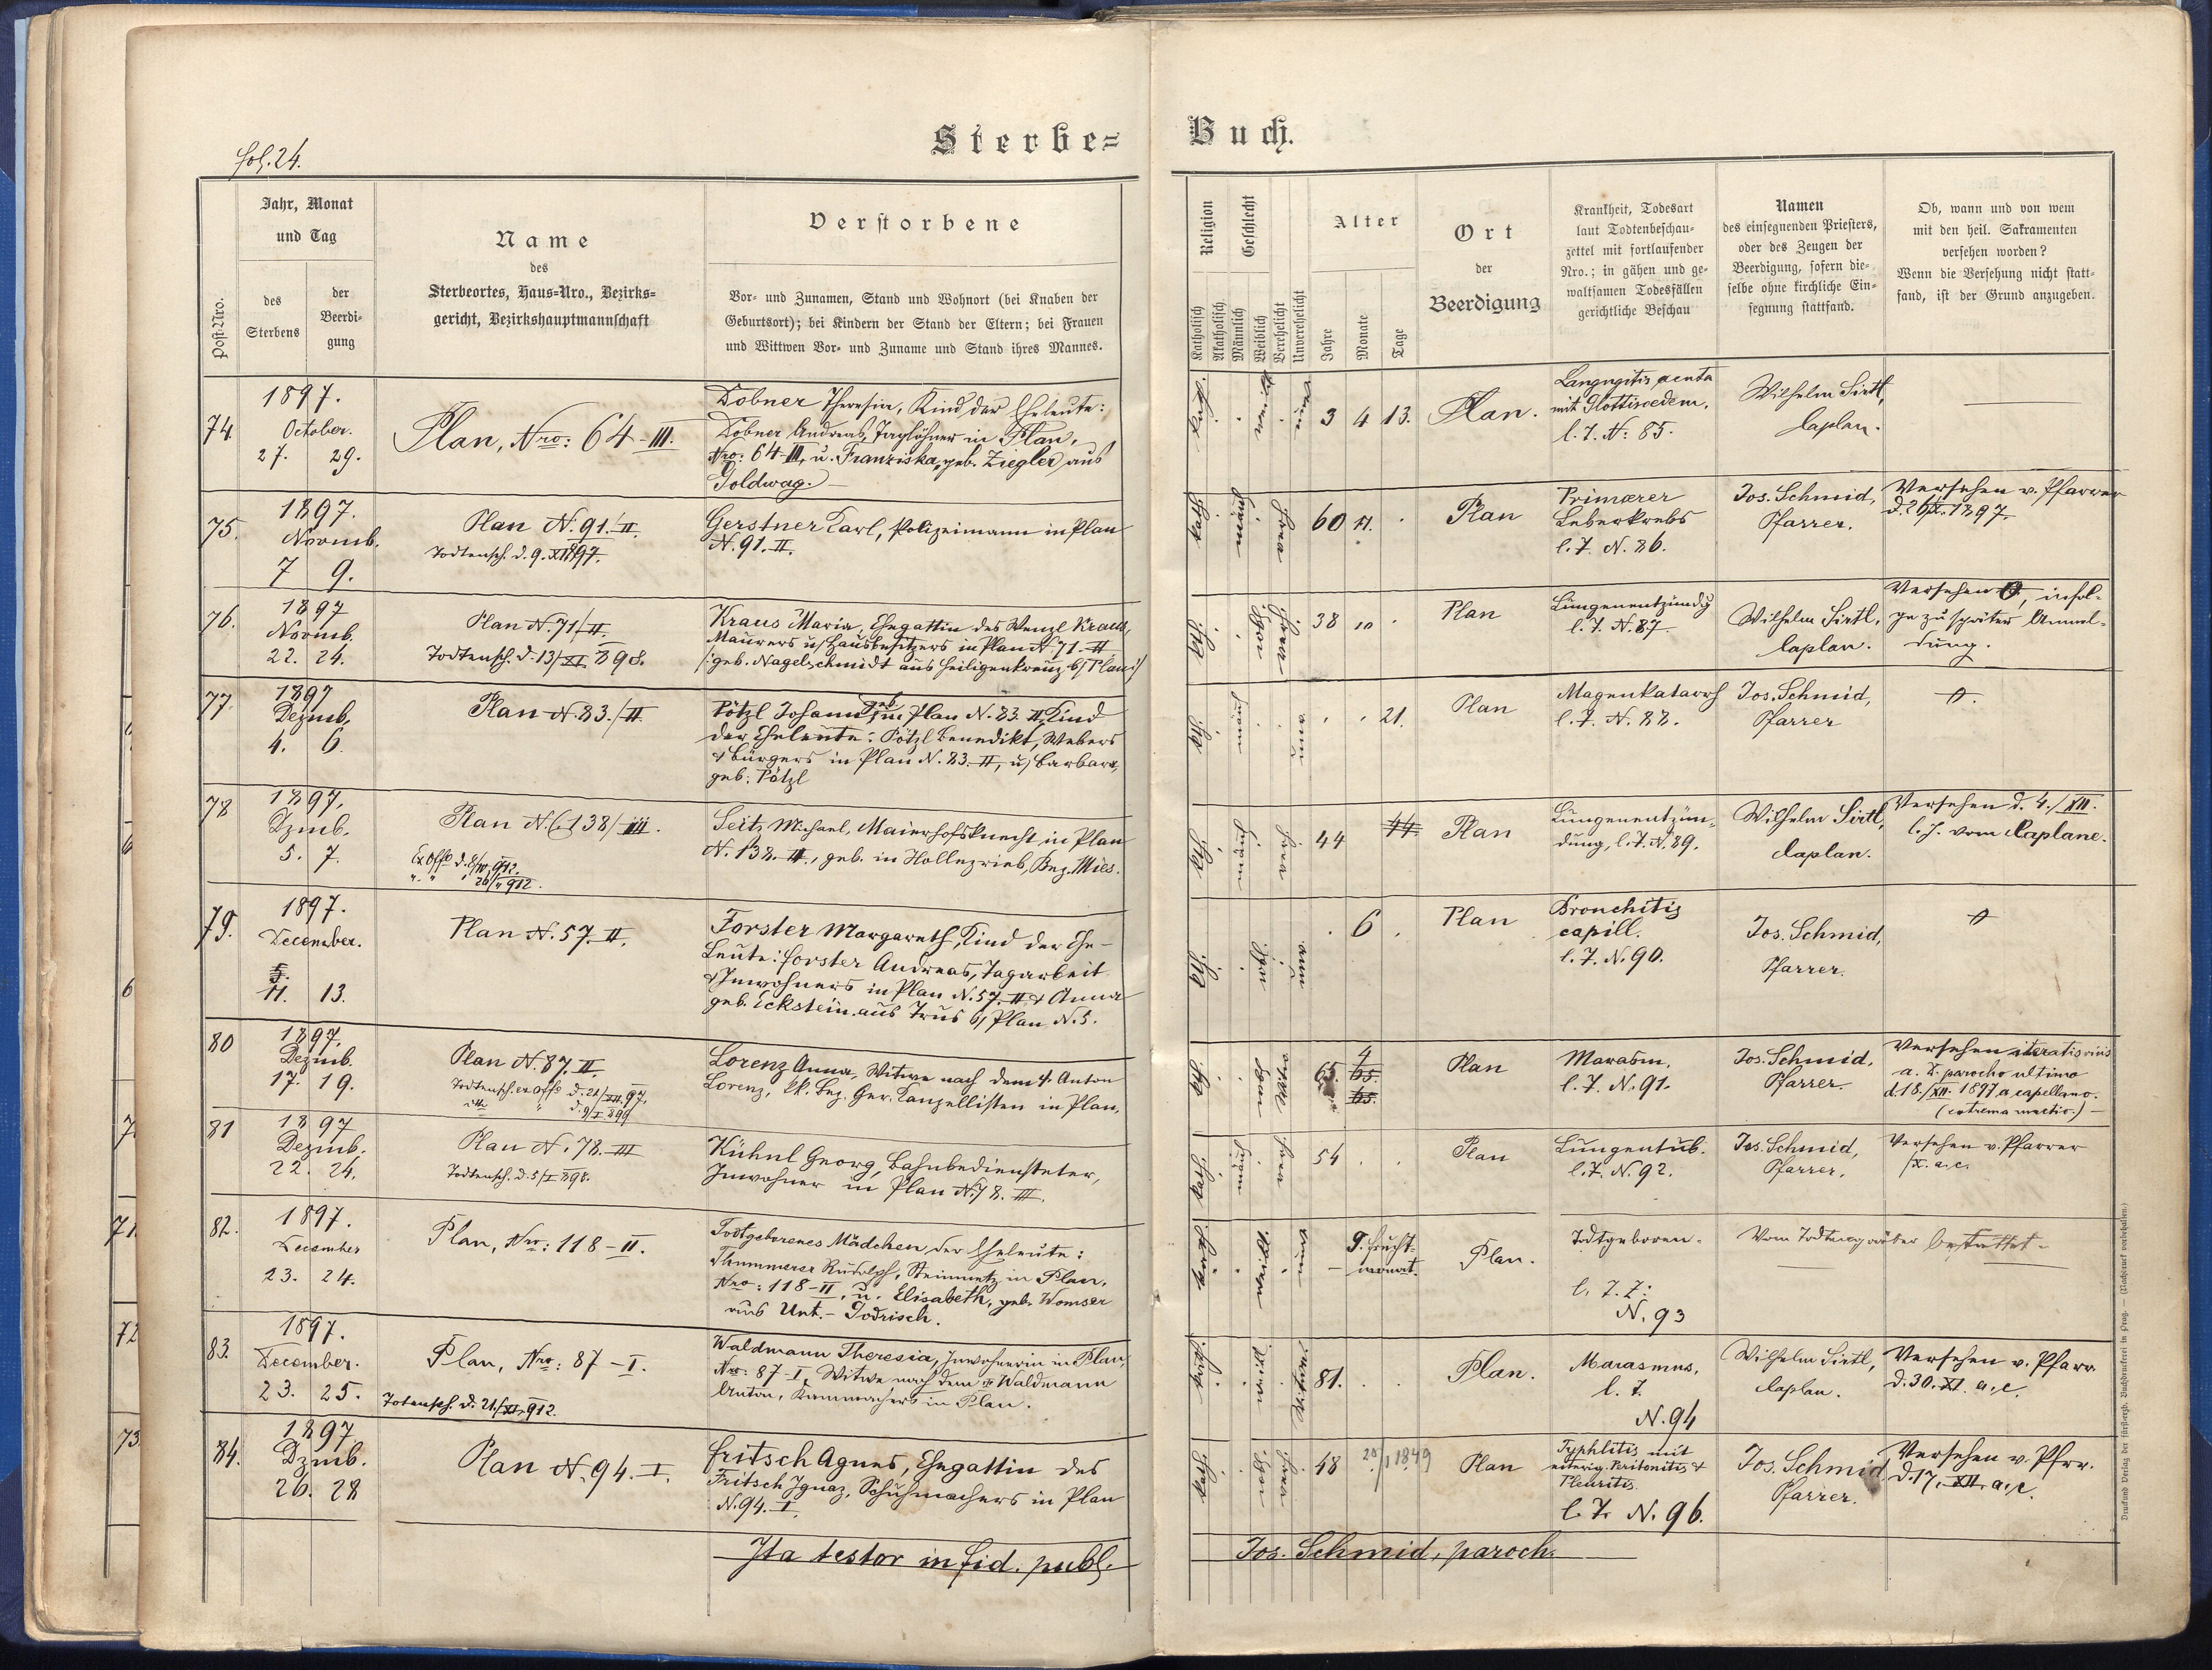 fol. 24.
Sterbe-
Buch.
Post-Nro.
Jahr, Monat
und Tag
des
Sterbens
der
Beerdi-
gung
Name
des
Sterbeortes, Haus-Nro., Bezirks-
gericht, Bezirkshauptmannschaft
Verstorbene
Vor- und Zunamen, Stand und Wohnort (bei Knaben der
Geburtsort); bei Kindern der Stand der Eltern; bei Frauen
und Wittwen Vor- und Zuname und Stand ihres Mannes.
Religion
Katholisch
Akatholisch
Geschlecht
Männlich
Weiblich
Verehelicht
Unverehelicht
Alter
Jahre
Monate
Tage
Ort
der
Beerdigung
Krankheit, Todesart
laut Todtenbeschau-
zettel mit fortlaufender
Nro.; in gähen und ge-
waltsamen Todesfällen
gerichtliche Beschau
Namen
des einsegnenden Priesters,
oder des Zeugen der
Beerdigung, sofern die-
selbe ohne kirchliche Ein-
segnung stattfand.
Ob, wann und von wem
mit den heil. Sakramenten
versehen worden?
Wenn die Versehung nicht statt-
fand, ist der Grund anzugeben.
74.
1897.
October.
27. 29.
Plan, Nro: 64-III.
Dobner Theresia, Kind der Eheleute:
Dobner Andreas, Taglöhner in Plan,
Nro: 64-III, u. Franziska, geb. Ziegler aus
Goldwag.
3 4 13.
Plan.
Laryngitis acuta
mit Glottisoedem.
l. Z. N: 85.
Wilhelm Sirtl,
Caplan.
75.
1897.
Novemb.
7 9.
Plan N. 91. II.
Todtensch. d. 9. XI 1897.
Gerstner Karl, Polizeimann in Plan
N. 91. II.
60 11.
Plan
Primærer
Leberkrebs
l. Z. N. 86.
Jos. Schmid,
Pfarrer.
Versehen v. Pfarrer
1897.
76.
1897
Novemb.
22. 24.
Plan N. 71/II.
Todtensch. d. 13/XI 898.
Kraus Maria, Ehegattin des Wenzl Kraus,
Maurers u/ Hausbesitzers in Plan N. 71-II
/: geb. Nagelschmidt aus Heiligenkreuz b/ Plan :/
38 10
Plan
Lungenentzündg
l. Z. N. 87.
Wilhelm Sirtl,
Caplan.
Versehen 0, infol-
ge zu später Anmel-
dung.
77.
1897
Dezmb.
4. 6.
Plan N. 83./II.
Pötzl Johann, geb. in Plan N. 83. II, Kind
der Eheleute: Pötzl Benedikt, Webers
& Bürgers in Plan N. 83. II, u/ Barbara,
geb. Pötzl
21.
Plan
Magenkatarrh
l. Z. N. 88.
Jos. Schmid,
Pfarrer
0.
78
1897.
Dzmb.
5. 7.
Plan N. 138/III.
Ex Offo d. 8/IV. 912.
" " " 26/" 912.
Seitz Michael, Maierhofsknecht in Plan
N. 138. II., geb. in Hollezrieb, Bez. Mies.
44
44
Plan
Lungenentzün-
dung, l. Z. N. 89.
Wilhelm Sirtl,
Caplan.
Versehen d. 4./XII.
l. J. vom Caplane.
79.
1897.
December.
5.
11. 13.
Plan N. 57. II.
Forster Margareth, Kind der Ehe-
leute: Forster Andreas, Tagarbeit.
& Inwohners in Plan N. 57. II & Anna
geb. Eckstein aus Trus b/ Plan N. 5.
6
Plan
Bronchitis
capill.
l. Z. N. 90.
Jos. Schmid,
Pfarrer.
0
80
1897.
Dezmb.
17. 19.
Plan N. 87. II.
Todtensch. ex offo d. 21/XII. 97.
d. 9/I 899
Lorenz Anna, Witwe nach dem † Anton
Lorenz, kk. Bez. Ger. Kanzellisten in Plan.
65. 4
65.
65.
Plan
Marasm.
l. Z. N. 91.
Jos. Schmid,
Pfarrer.
Versehen iteratis vicis
a. L. parocho ultimo
d. 18./XII. 1897 a capellano.
(extrema unctio.)
81
1897
Dezmb.
22. 24.
Plan N. 78. III
Todtensch. d. 5/I 898.
Kühnl Georg, Bahnbediensteter,
Inwohner in Plan N. 78. III.
54
Plan
Lungentub.
l. Z. N. 92.
Jos. Schmid,
Pfarrer.
Versehen v. Pfarrer
a. c.
82.
1897.
December
23. 24.
Plan, Nro: 118-II.
Todtgeborenes Mädchen der Eheleute:
Thummerer Rudolph, Steinmetz in Plan,
Nro: 118-II, u. Elisabeth, geb. Womser
aus Unt.-Godrisch.
9. Frucht-
monat.
Plan.
Todtgeboren.
l. Z. Z:
N. 93
Vom Todtengräber bestattet.
83.
1897.
December.
23. 25.
Plan, Nro: 87-I.
Totensch. d. 21/XI. 912.
Waldmann Theresia, Inwohnerin in Plan,
Nro: 87-I, Witwe nach dem † Waldmann
Anton, Kammachers in Plan.
81.
Plan.
Marasmus,
l. Z.
N. 94
Wilhelm Sirtl,
Caplan.
Versehen v. Pfarr.
d. 30. XI. a. c.
84.
1897.
Dzmb.
26. 28
Plan N. 94. I.
Fritsch Agnes, Ehegattin des
Fritsch Ignaz, Schuhmachers in Plan
N. 94. I.
48 20/1 1849
Plan
Typhlitis mit
eiterig. Peritonitis &
Pleuritis
l. Z. N. 96.
Jos. Schmid
Pfarrer.
Versehen v. Pfrr.
d. 17. XII. a. c.
Ita testor in fid. publ.
Jos. Schmid, paroch.
Druck und Verlag der fürsterzb. Buchdruckerei in Prag. — (Nachdruck vorbehalten.)